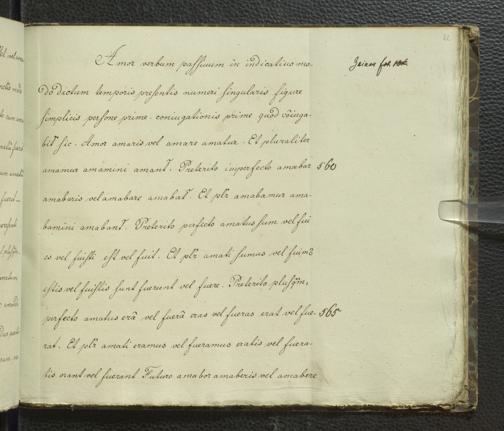 Amor verbum passiuum in indicatiuo mo-
do dictum temporis presentis numeri singularis figure
simplicis persone prime coniugationis prime quod côiuga-
bit̃ sic. Amor amaris vel amare amatur. Et pluraliter
amamur amamini amant̃. Preterito imperfecto amabar 560
amabaris vel amabare amabat̃. Et plr̃ amabamur ama-
bamini amabant̃. Preterito perfecto amatus sum vel fui
es vel fuisti est vel fuit. Et plr̃ amati sumus vel fuim̃
estis vel fuistis sunt fuerunt vel fuere. Preterito plusq̃m,
perfecto amatus erã vel fuerã eras vel fueras erat vel fue- 565
rat. Et plr̃ amati eramus vel fueramus eratis vel fuera-
tis erant vel fuerant Futuro amabor amaberis vel amabere